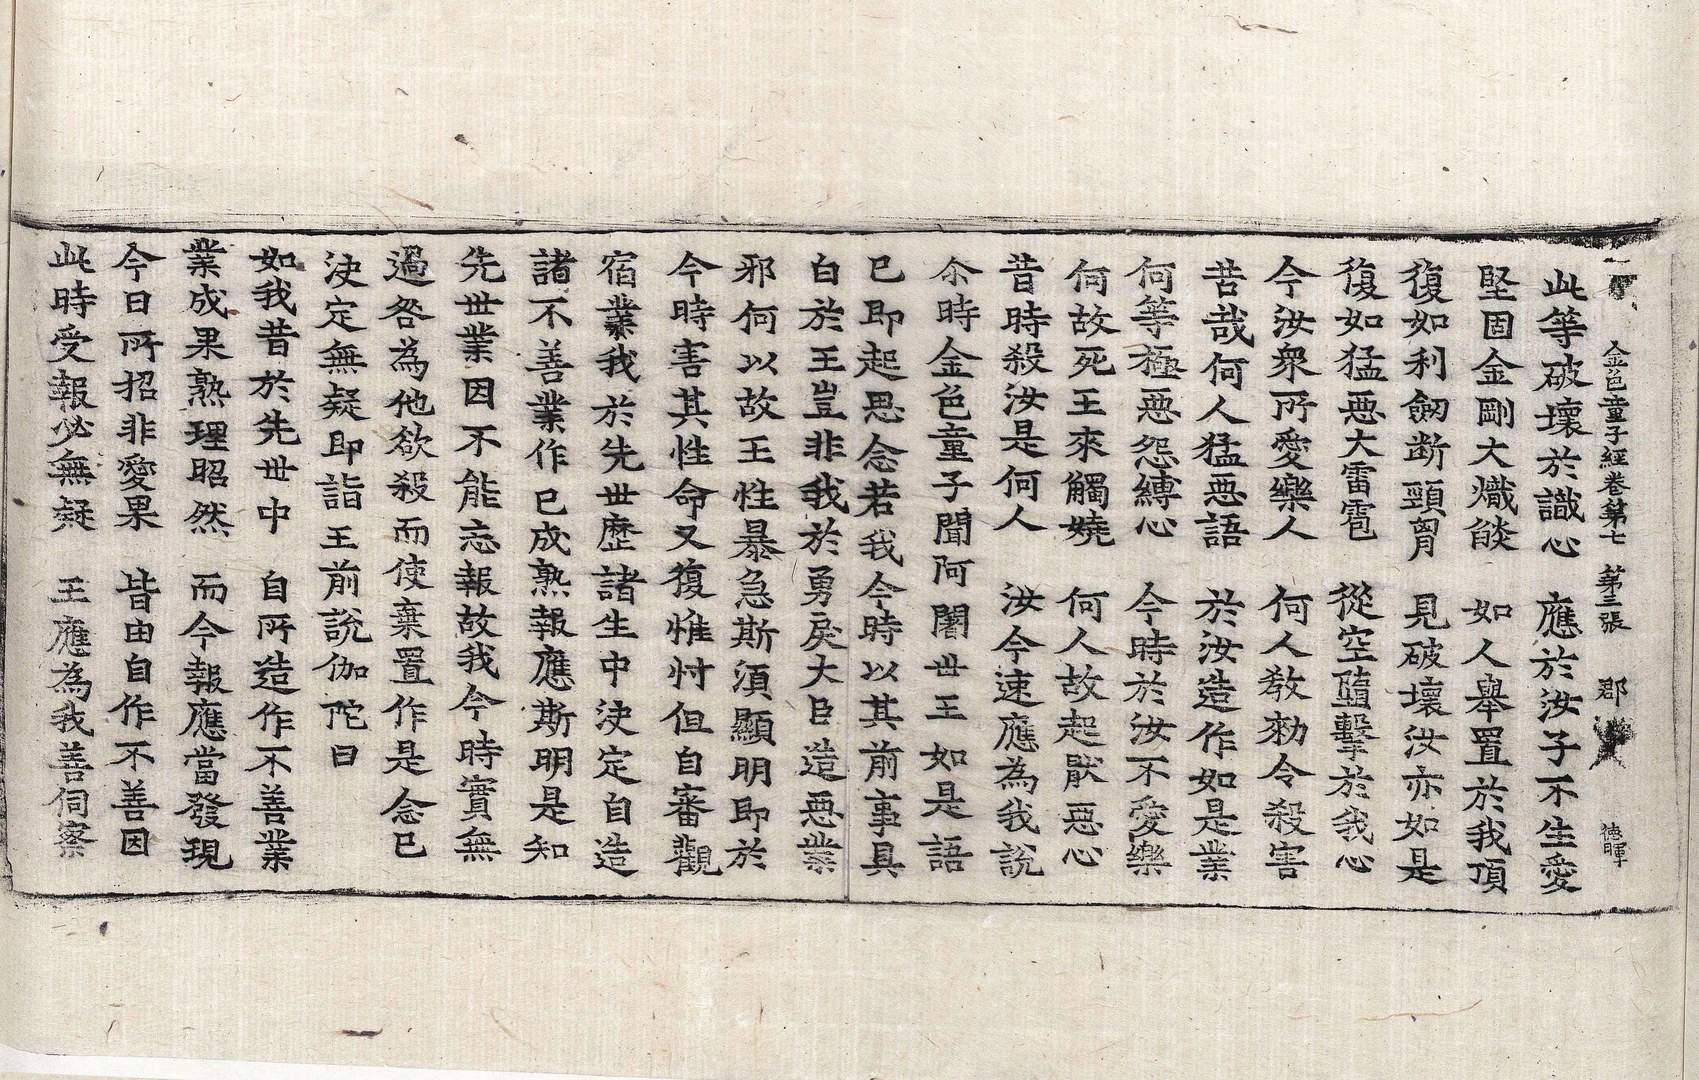 金色童子經卷第七　第三張　郡　德暉
此等破壞於識心　應於汝子不生愛
堅固金剛大熾𦦨　如人舉置於我頂
復如利劒断頸胷　見破壞汝亦如是
復如猛惡大雷雹　從空墮擊於我心
今汝衆所愛樂人　何人教勑令殺害
苦哉何人猛惡語　於汝造作如是業
何等極惡怨縛心　今時於汝不愛樂
何故死王來觸嬈　何人故起猒惡心
昔時殺汝是何人　汝今速應為我說
尒時金色童子聞阿闍世王如是語
已即起思念若我今時以其前事具
白於王豈非我於勇戾大臣造惡業
邪何以故王性暴急斯須顯明即於
今時害其性命又復惟忖但自審觀
宿業我於先世歷諸生中決定自造
諸不善業作已成熟報應斯明是知
先世業因不能忘報故我今時實無
過咎為他欲殺而使棄置作是念已
決定無疑即詣王前說伽陀曰
如我昔於先世中　自所造作不善業
業成果熟理昭然　而今報應當發現
今日所招非愛果　皆由自作不善因
此時受報必無疑　王應為我善伺察